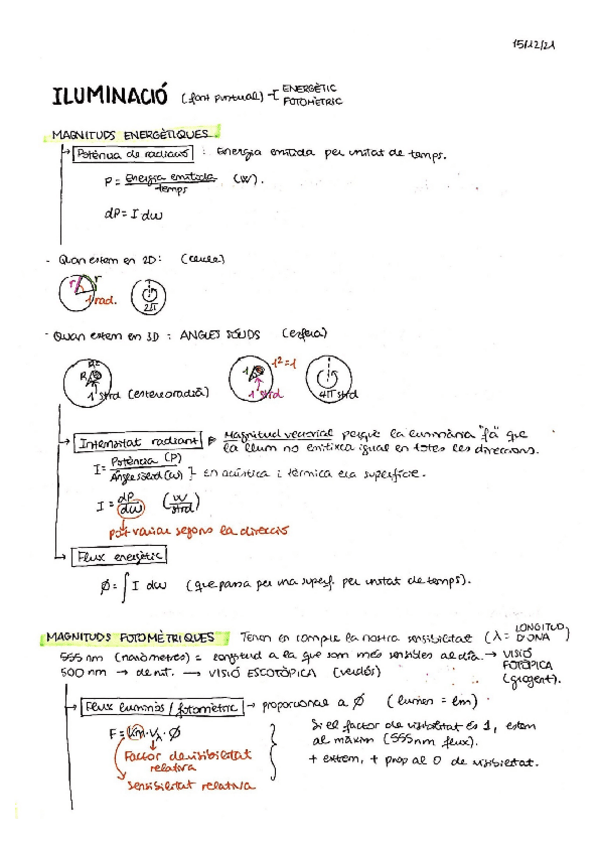 15/12/21
ILUMINACIÓ (font puntual) -[ ENERGÈTIC
FOTOMÈTRIC
MAGNITUDS ENERGÈTIQUES.
Potència de radiació : Energia emitida per unitat de temps.
P = Energia emitida / temps (W).
dP = I dω
- Quan estem en 2D: (cercle)
r r
1 rad. 2π
- Quan estem en 3D : ANGLES SÒLIDS (esfera)
R² 1² = 1
R 1
1 strd (estereoradià) 1 strd 4π strd
Intensitat radiant Magnitud vectorial perquè la lluminària "fa" que
la llum no emitixca igual en totes les direccions.
I = Potència (P) / Angle sòlid (ω) } En acústica i tèrmica era superfície.
I = dP / dω (W / strd)
pot variar segons la direcció
Flux energètic
Ø = ∫ I dω (que passa per una superf. per unitat de temps).
MAGNITUDS FOTOMÈTRIQUES Tenen en compte la nostra sensibilitat (λ = LONGITUD D'ONA)
555 nm (nanòmetres) = longitud a la que som més sensibles al dia. → VISIÓ FOTÒPICA (grogent).
500 nm → de nit. → VISIÓ ESCOTÒPICA (verdós)
Flux lluminós / fotomètric → proporcional a Ø (lumen = lm)
F = km · Vλ · Ø
Factor de visibilitat
relativa
Sensibilitat relativa
Si el factor de visibilitat és 1, estem
al màxim (555nm flux).
+ extrem, + prop al 0 de visibilitat.